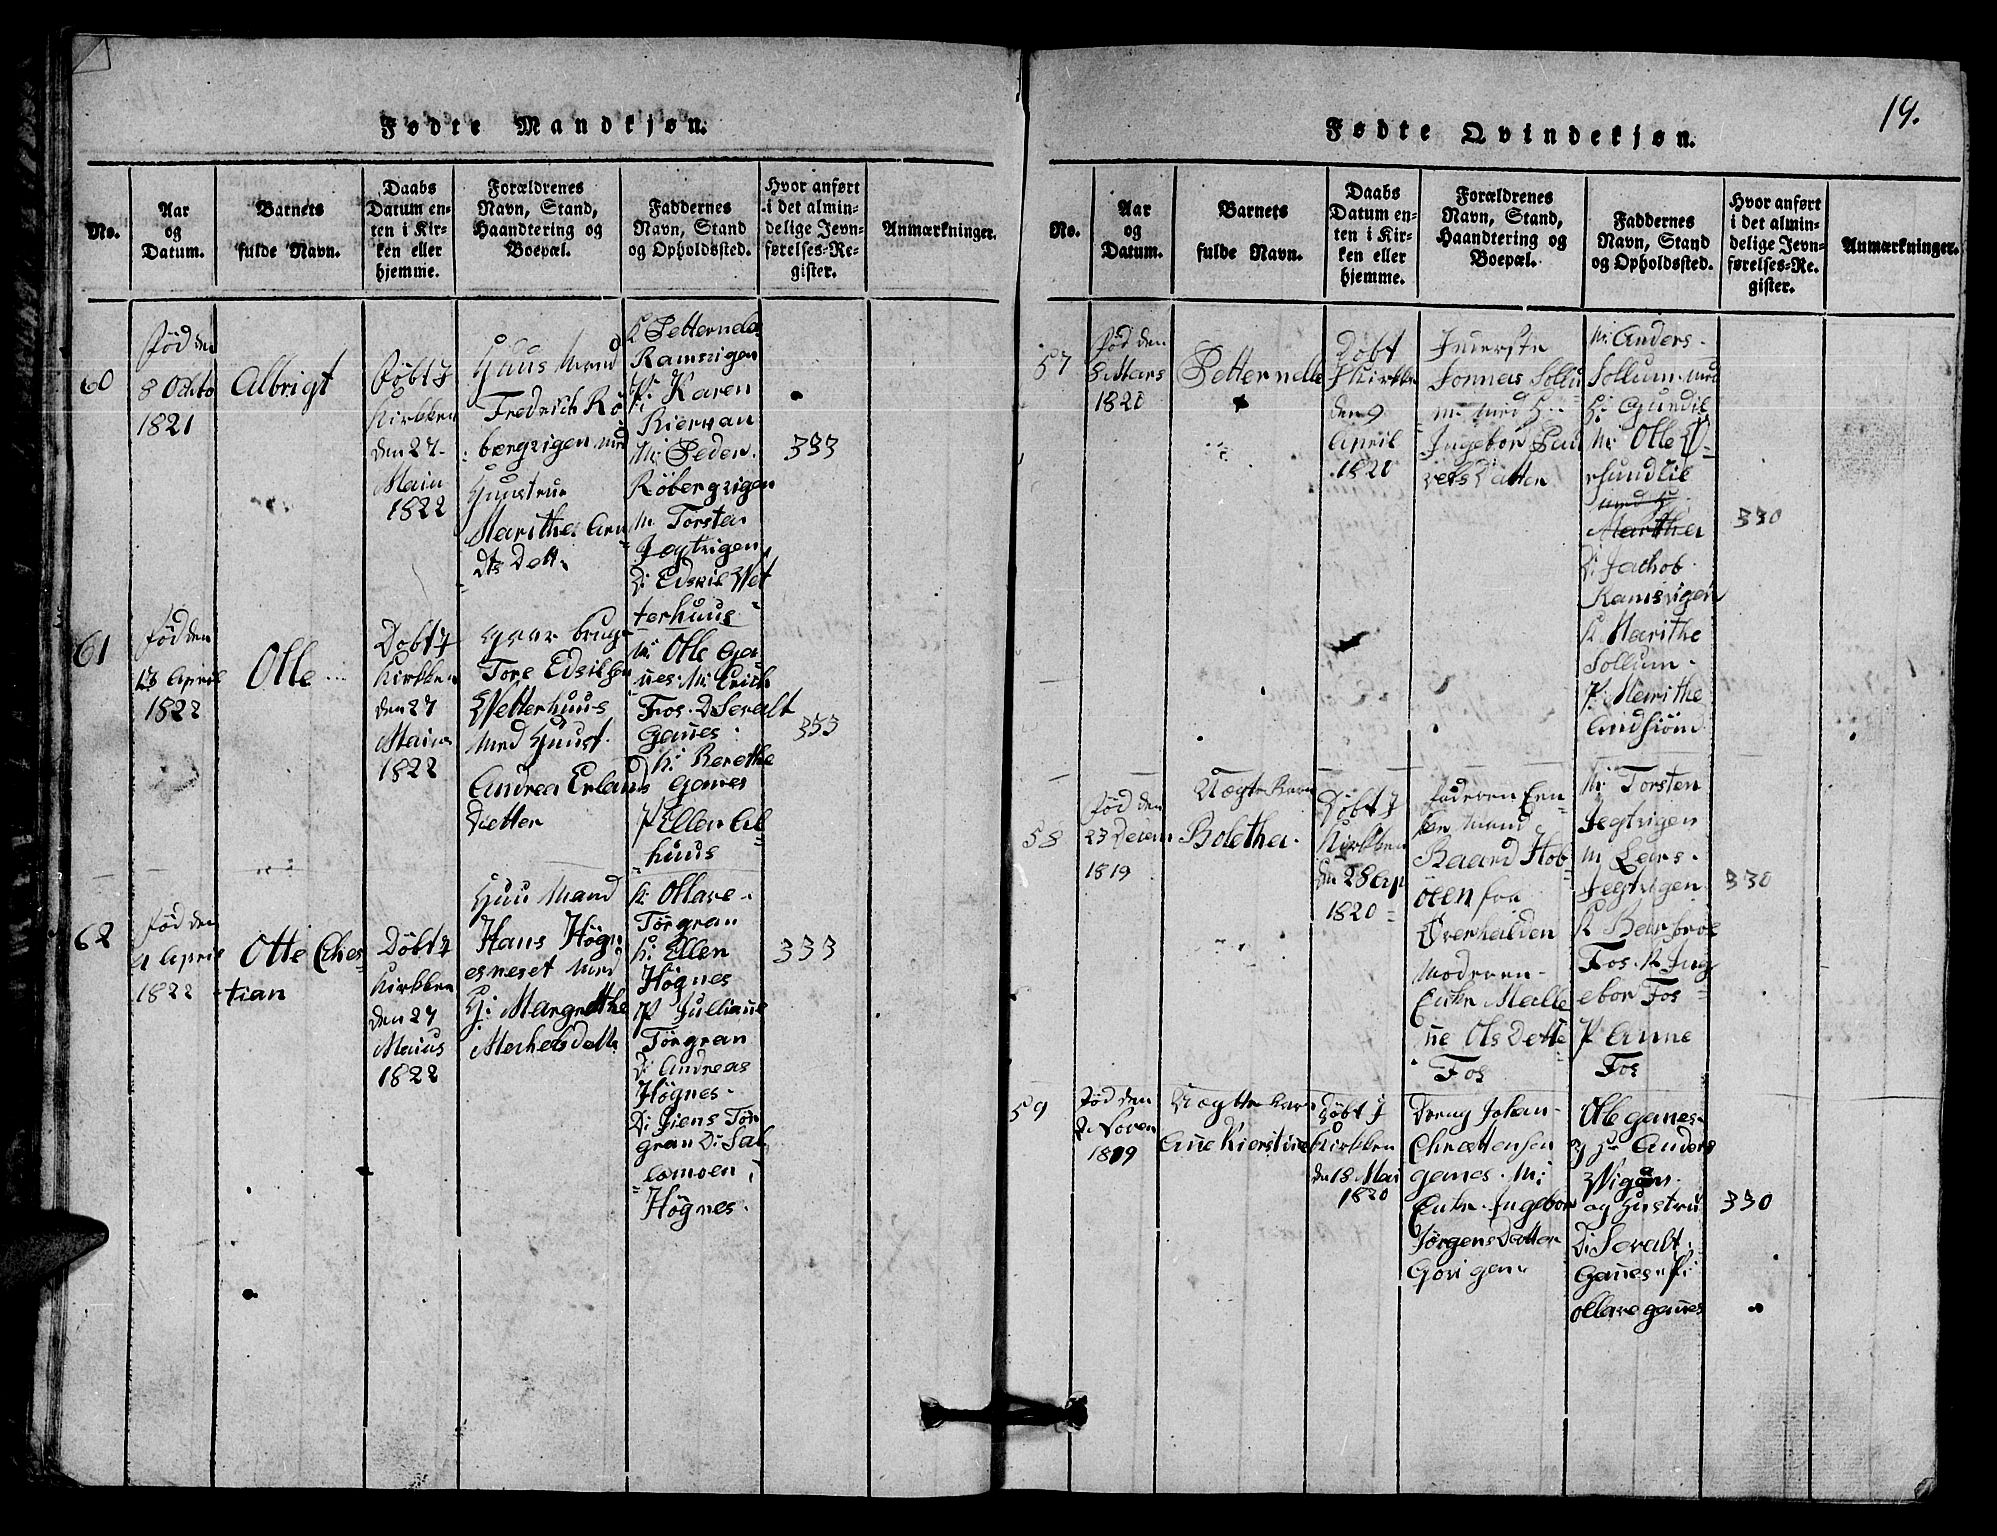 19.
Fødte Mandkjøn.
No.
Aar
og
Datum.
Barnets
fulde Navn.
Daabs
Datum en-
ten i Kir-
ken eller
hjemme.
Forældrenes
Navn, Stand,
Haandtering og
Boepæl.
Faddernes
Navn, Stand
og Opholdssted.
Hvor anført
i det almin-
delige Jevn-
førelses-Re-
gister.
Anmærkninger.
60
Fød den
8 Octo
1821
Albrigt
Døbt J
Kirkken
den 27
Maiu
1822
Huus Mand
Fredrich Rø
bergvigen med
Huustrue
Marithe Arn
dts Dott.
K Petternela
Ramsvigen
P: Karen
Kiervan
M: Peder
Røbergvigen
M: Torsten
Jegtvigen
D: Edskil Wet
terhuus
333
61
Fød den
13 April
1822
Olle
Døbt J
Kirkken
den 27
Maius
1822
Gaar bruge
Tore Edsilsen
Wetterhuus
med Huust.
Andrea Erlands
Datter
M: Olle Ga
nes M: Erich
Fos. D Sevalt
Ganes
K: Berethe
Ganes
P Ellen Al
huus
333
62
Fød den
4 April
1822
Otte Ches
tian
Døbt J
Kirkken
den 27
Maius
1822
Huu Mand
Hans Høgn
esneset med
H: Margrethe
Mechelsdatt
K: Ollave
Tørgran
K: Ellen
Høgnes
P Julliane
Tørgran
D: Andreas
Høgnes
D: Jens Tør
gran D: Sal
lamoen
Høgnes.
333
Fødte Qvindekjøn.
No.
Aar
og
Datum.
Barnets
fulde Navn.
Daabs
Datum en-
ten i Kir-
ken eller
hjemme.
Forældrenes
Navn, Stand,
Haandtering og
Boepæl.
Faddernes
Navn, Stand
og Opholdssted.
Hvor anført
i det almin-
delige Jevn-
førelses-Re-
gister.
Anmærkninger.
57
Fød den
8 Mars
1820
Petternelle
Døbt
J Kirkke
den 9
April
1820
Inerste
Jonnas Sollu
m med H
Ingebor Pau
vels Datter
M: Anders
Sollum med
H: Gundil
M: Olle
med H
Marithe
D: Jachob
Ramsvigen
K: Marithe
Sollum
P: Marithe
330
58
Fød den
23 Decem
1819
Uægte Barn
Bolethe.
Døbt J
Kirkken
den 28 Ap
1820
Faderen En-
ke Mand
Baard Hob
øen fra
Overhalden
Moderen
Enke Malle
ne Ols Dotte
Fos
M: Torsten
Jegtvigen
M Lars
Jegtvigen
Fos. K Ing
ebor Fos
P Anne
Fos
330
59
Fød den
2 Noven
1819
Uægte Barn
Ane Kierstine
Døbt J
Kirkken
den 18 Mai
1820
Dreng Johan
Chrættensen
ganes. M:
Enke. Ingebor
Jørgens Datter
Govigen
Ole ganes
og H: Anders
Wigen
og Hustru
D: Sevalt
Ganes P:
ollave ganes
330